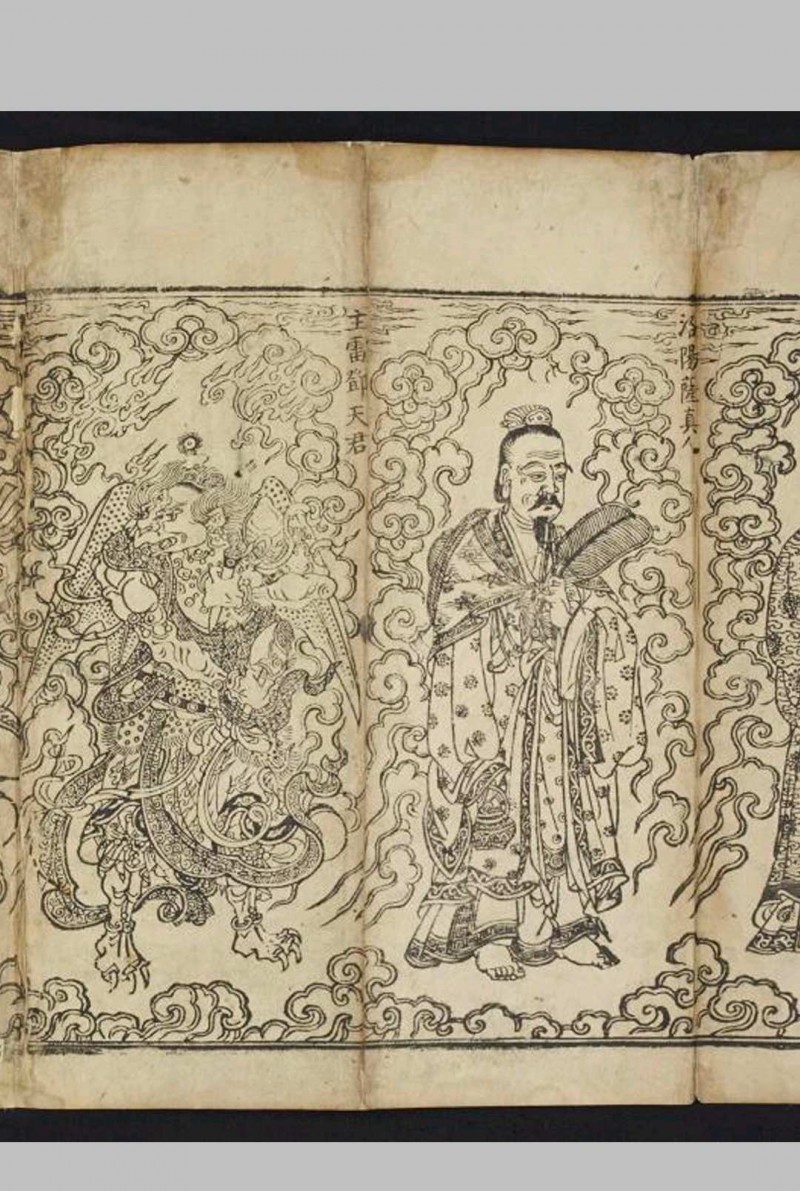 汾陽薩真人
主雷鄧天君